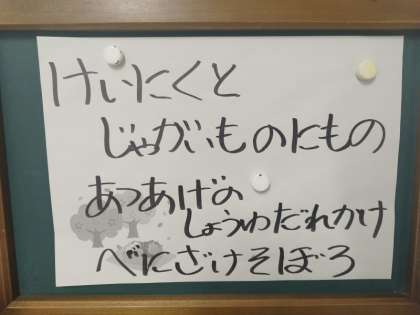 けいにくと
じゃがいものにもの
あつあげの
しょうゆだれかけ
べにざけそぼろ